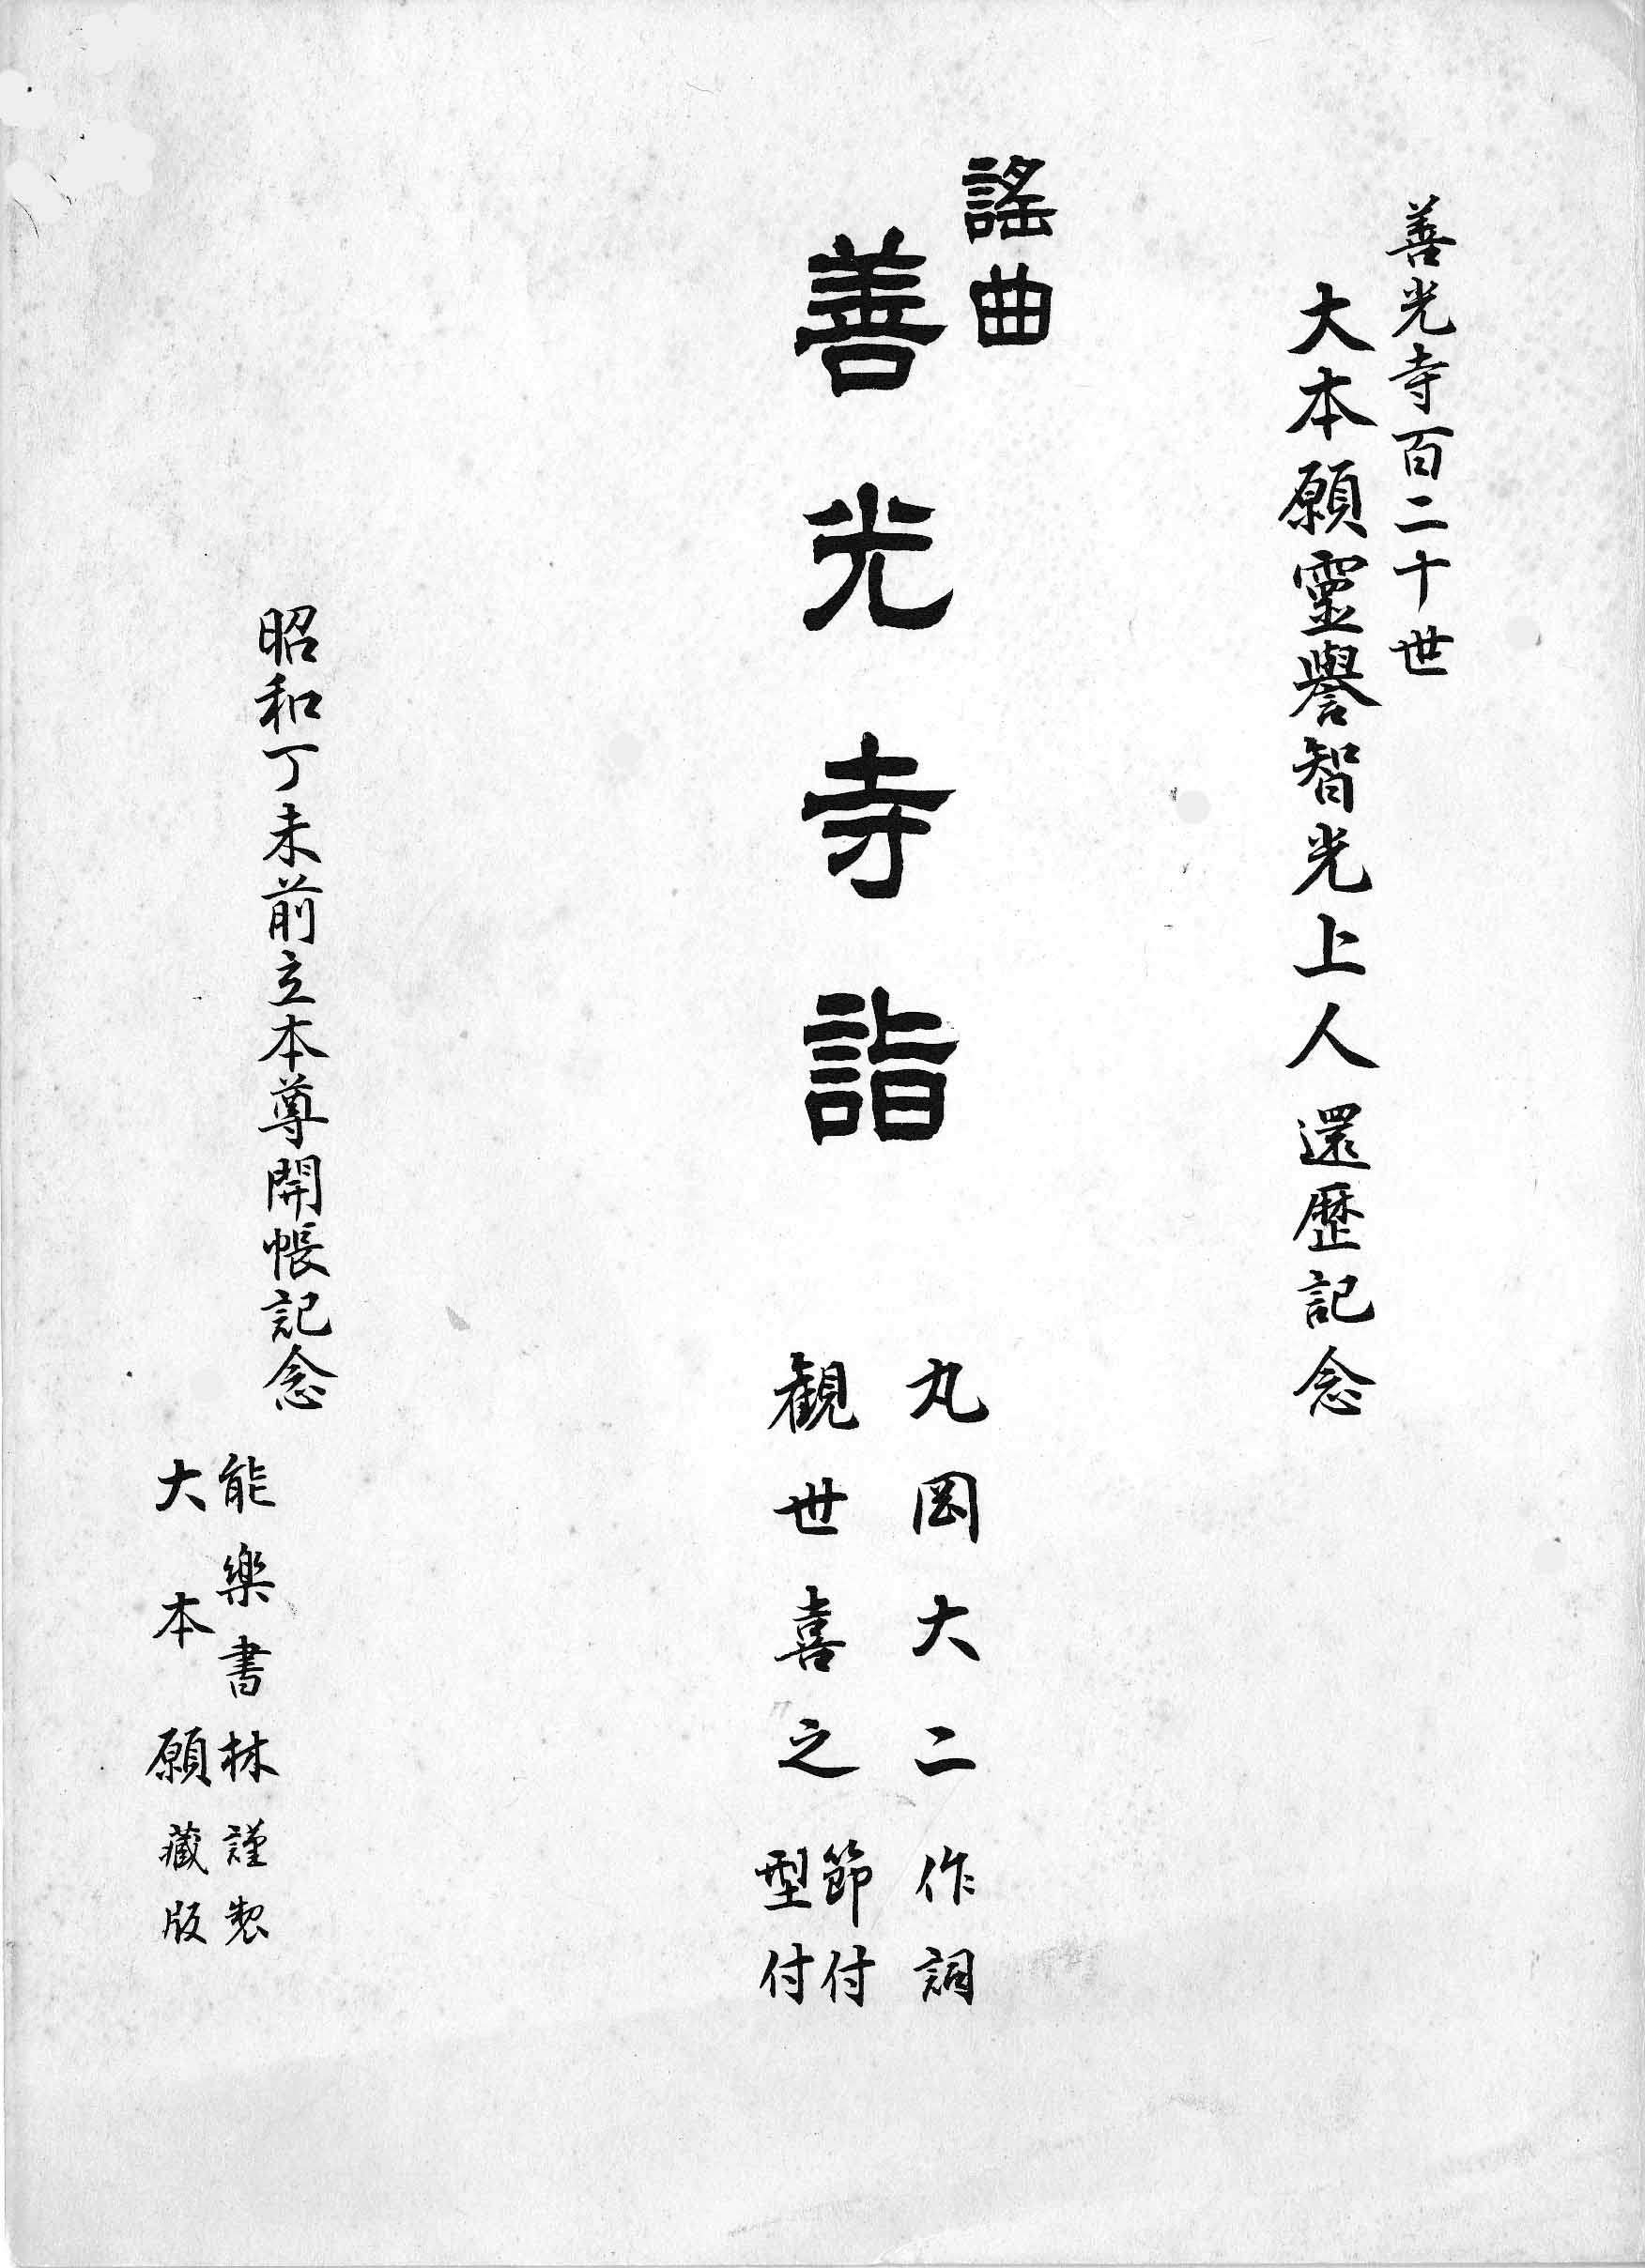 善光寺百二十世
大本願靈譽智光上人還歴記念
謠曲
善光寺詣
丸岡大二作詞
観世喜之節付型付
昭和丁未前立本尊開帳記念
能樂書林謹製
大本願藏版